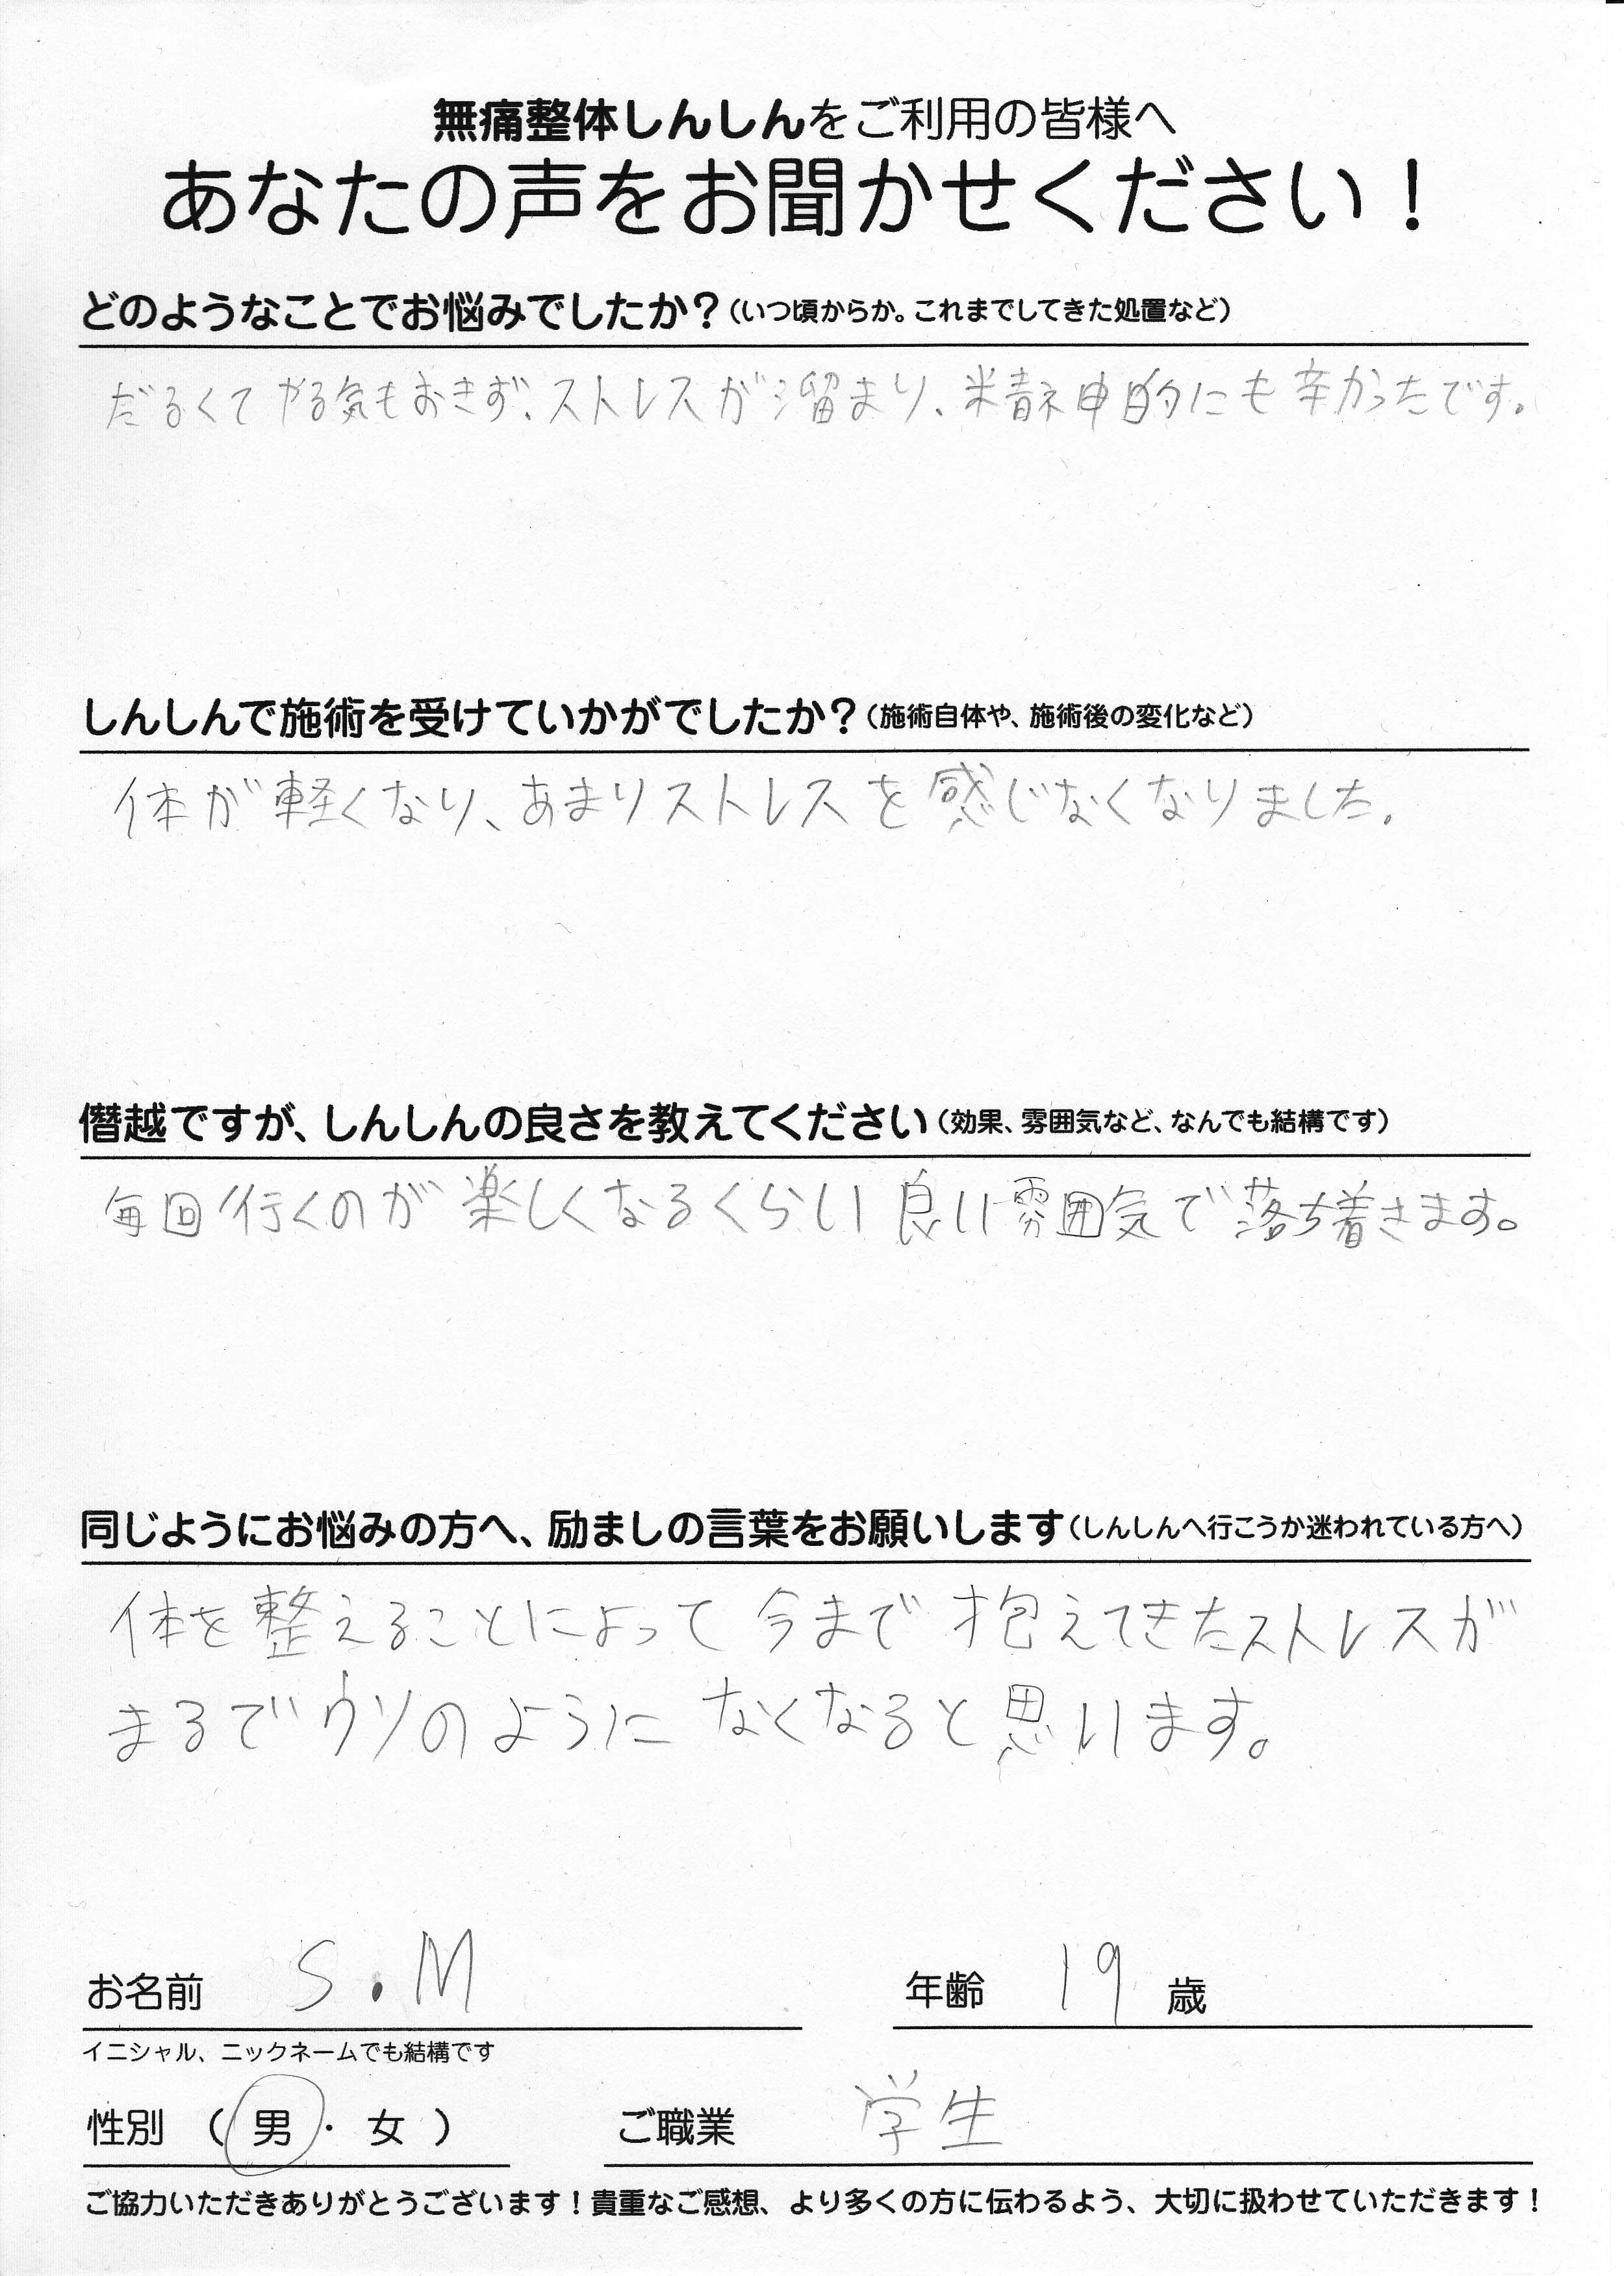 無痛整体しんしんをご利用の皆様へ
あなたの声をお聞かせください！
どのようなことでお悩みでしたか？（いつ頃からか。これまでしてきた処置など）
だるくてやる気もおきず、ストレスが溜まり、精神的にも辛かったです。
しんしんで施術を受けていかがでしたか？（施術自体や、施術後の変化など）
体が軽くなり、あまりストレスを感じなくなりました。
僭越ですが、しんしんの良さを教えてください（効果、雰囲気など、なんでも結構です）
毎回行くのが楽しくなるくらい良い雰囲気で落ち着きます。
同じようにお悩みの方へ、励ましの言葉をお願いします（しんしんへ行こうか迷われている方へ）
体を整えることによって今まで抱えてきたストレスが
まるでウソのようになくなると思います。
お名前 S.M 年齢 19 歳
イニシャル、ニックネームでも結構です
性別 （ 男 ・ 女 ） ご職業 学生
ご協力いただきありがとうございます！貴重なご感想、より多くの方に伝わるよう、大切に扱わせていただきます！